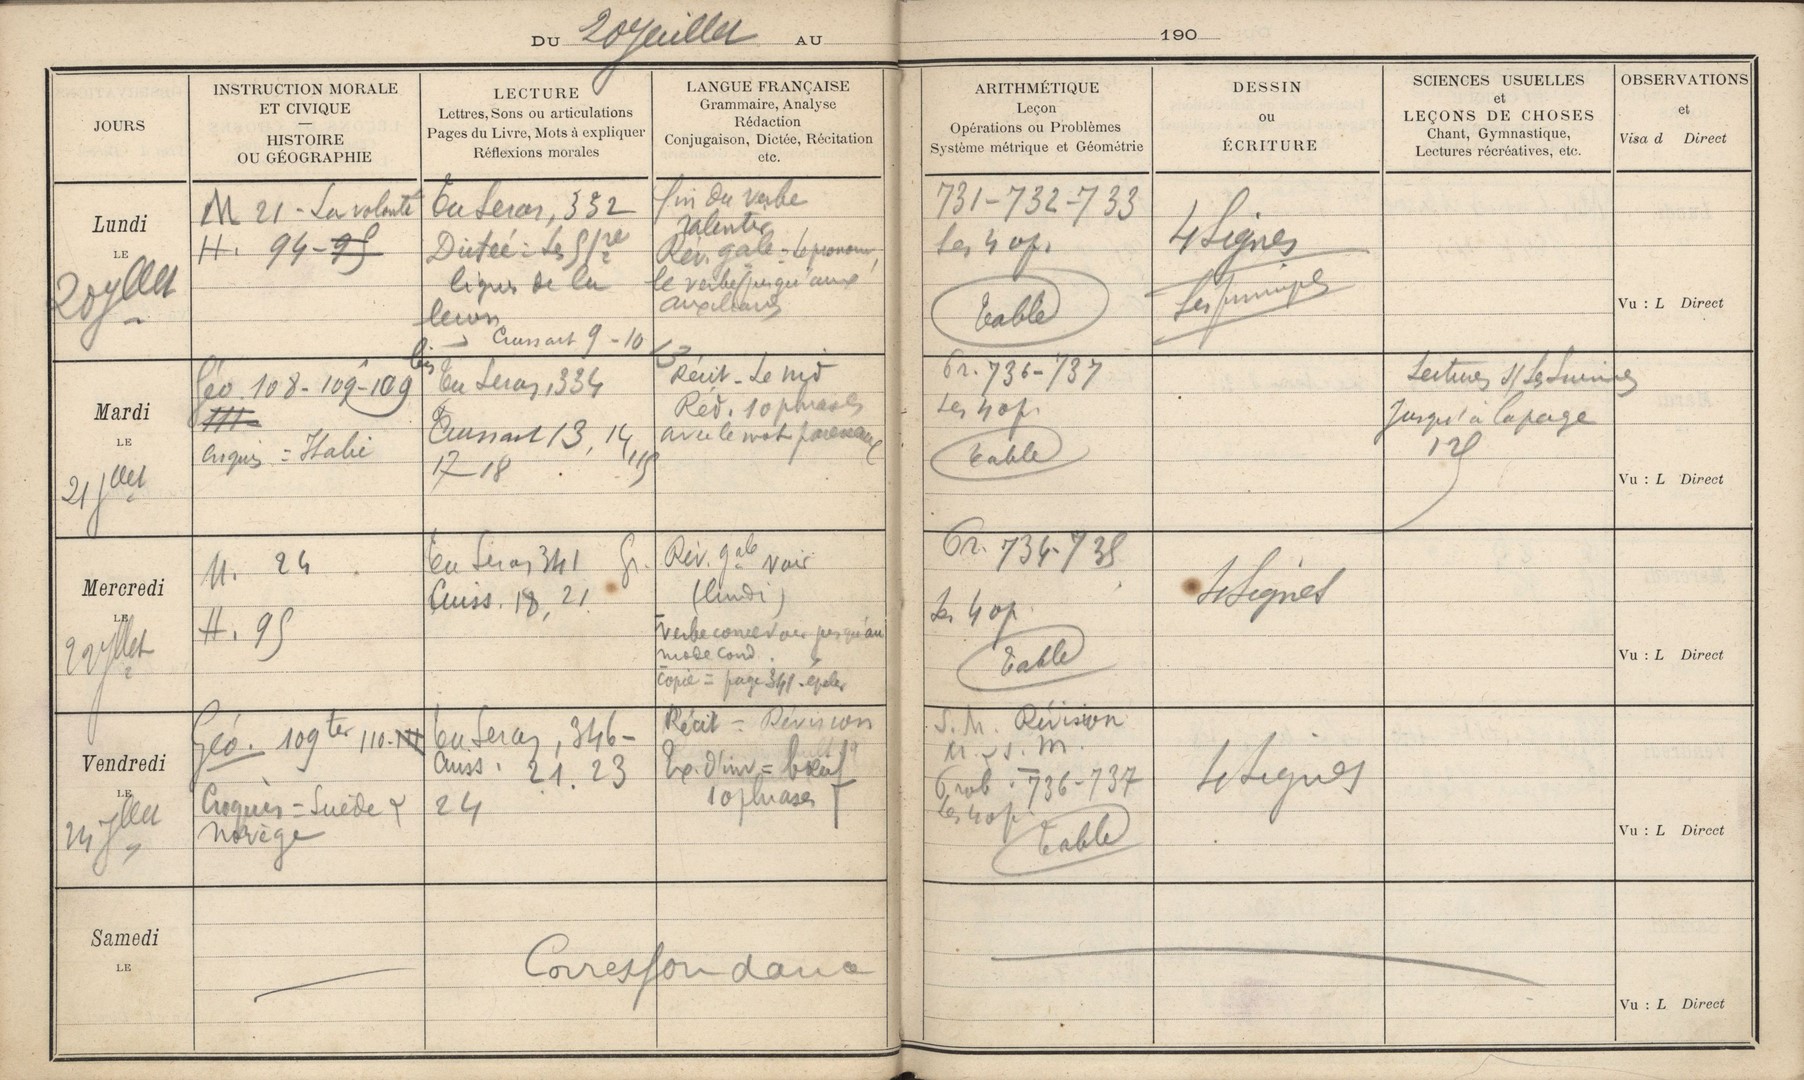 DU 20 Juillet AU
190
JOURS
INSTRUCTION MORALE
ET CIVIQUE
—
HISTOIRE
OU GÉOGRAPHIE
LECTURE
Lettres, Sons ou articulations
Pages du Livre, Mots à expliquer
Réflexions morales
LANGUE FRANÇAISE
Grammaire, Analyse
Rédaction
Conjugaison, Dictée, Récitation
etc.
ARITHMÉTIQUE
Leçon
Opérations ou Problèmes
Système métrique et Géométrie
DESSIN
ou
ÉCRITURE
SCIENCES USUELLES
et
LEÇONS DE CHOSES
Chant, Gymnastique,
Lectures récréatives, etc.
OBSERVATIONS
et
Visa d Direct
Lundi
LE
20 jllet
M 21 - La volonté
H. 94-95
Tu Seras, 332
Dictée : Les 5 1res
lignes de la
leçon
Cuissart 9-10
fin du verbe
ralentir
Rév. gale = Le pronom,
le verbe jusqu'aux
auxiliaires
731-732-733
Les 4 op.
Table
4 Lignes
Les principes
Vu : L Direct
Mardi
LE
21 jllet
Géo. 108-109-109 bis
111
croquis = Italie
Tu Seras, 334
Cuissart 13, 14, 15
17-18
Récit - Le nid
Réd. 10 phrases
avec le mot
Pr. 736-737
Les 4 op.
Table
Lectures s/ Les
jusqu'à la page
125
Vu : L Direct
Mercredi
LE
22 jllet
M. 24
H. 95
Tu Seras 341
Cuiss. 18, 21
Gr. Rév. gale voir
(lundi)
Verbe concevoir jusqu'au
mode cond.
Copie = page 341.
Pr. 734-735
Les 4 op.
Table
4 Lignes
Vu : L Direct
Vendredi
LE
24 jllet
Géo. 109 ter 110-111
Croquis = Suède &
Norvège
Tu Seras, 346-
Cuiss. 21. 23
24
Récit = Révision
Ex. d'inv = bœuf
10 phrases
S. M. Révision
M. S. M.
Prob. 736-737
Les 4 op.
Table
4 Lignes
Vu : L Direct
Samedi
LE
Correspondance
Vu : L Direct